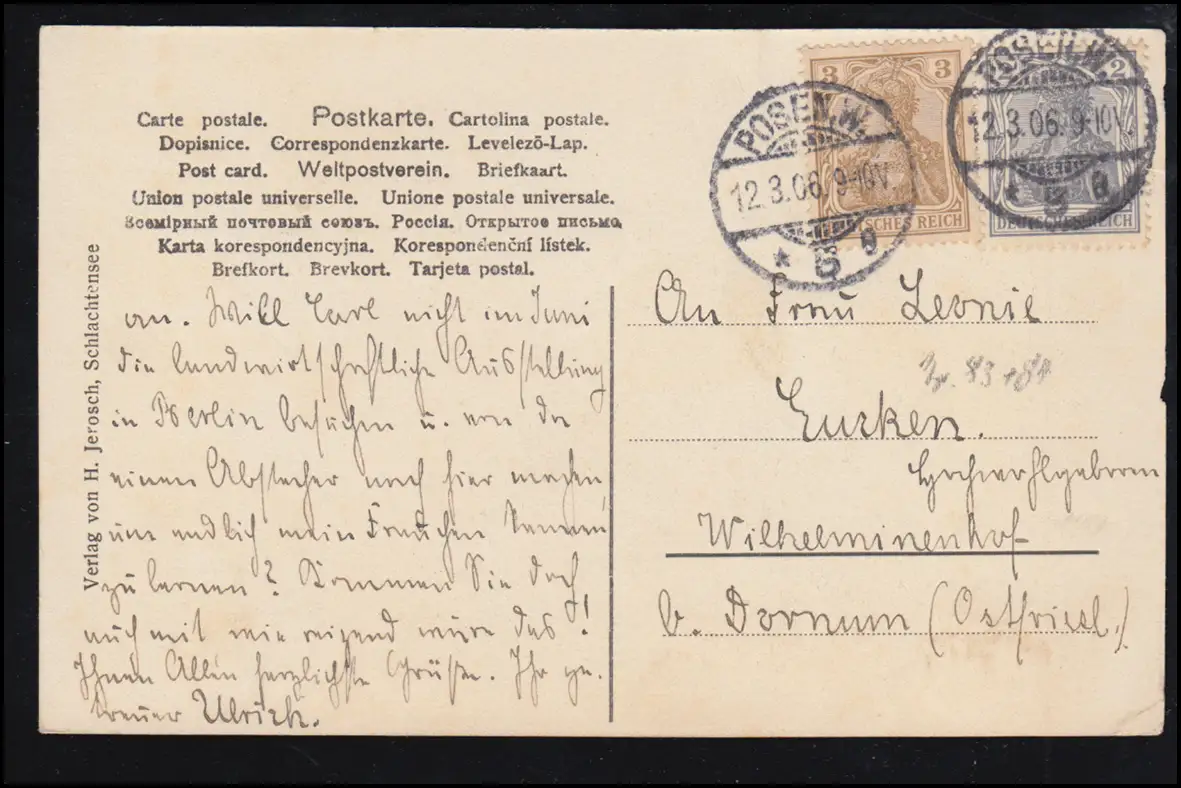 Carte postale. Postkarte. Cartolina postale.
Dopisnice. Correspondenzkarte. Levelezö-Lap.
Post card. Weltpostverein. Briefkaart.
Union postale universelle. Unione postale universale.
Всемірный почтовый союзъ. Россія. Открытое письмо
Karta korespondencyjna. Korespondenční lístek.
Brefkort. Brevkort. Tarjeta postal.
Verlag von H. Jerosch, Schlachtensee
an. Will Carl nicht im Juni
die landwirtschaftliche Ausstellung
in Berlin besuchen u. von da
einen Abstecher nach hier machen,
um endlich mein Frauchen kennen
zu lernen? Kommen Sie doch
auch mit wie reizend wäre das!
Ihnen Allen herzlichste Grüße. Ihr ge-
treuer Ulrich.
3 3
DEUTSCHES REICH
POSEN.W.
12.3.06. 9-10V.
* 5 a
2
DEUTSCHES REICH
POSEN.W.
12.3.06. 9-10V.
* 5 a
An Frau Leonie
83 + 84
Eucken.
Hochwohlgeboren
Wilhelminenhof
b. Dornum (Ostfriesl.)